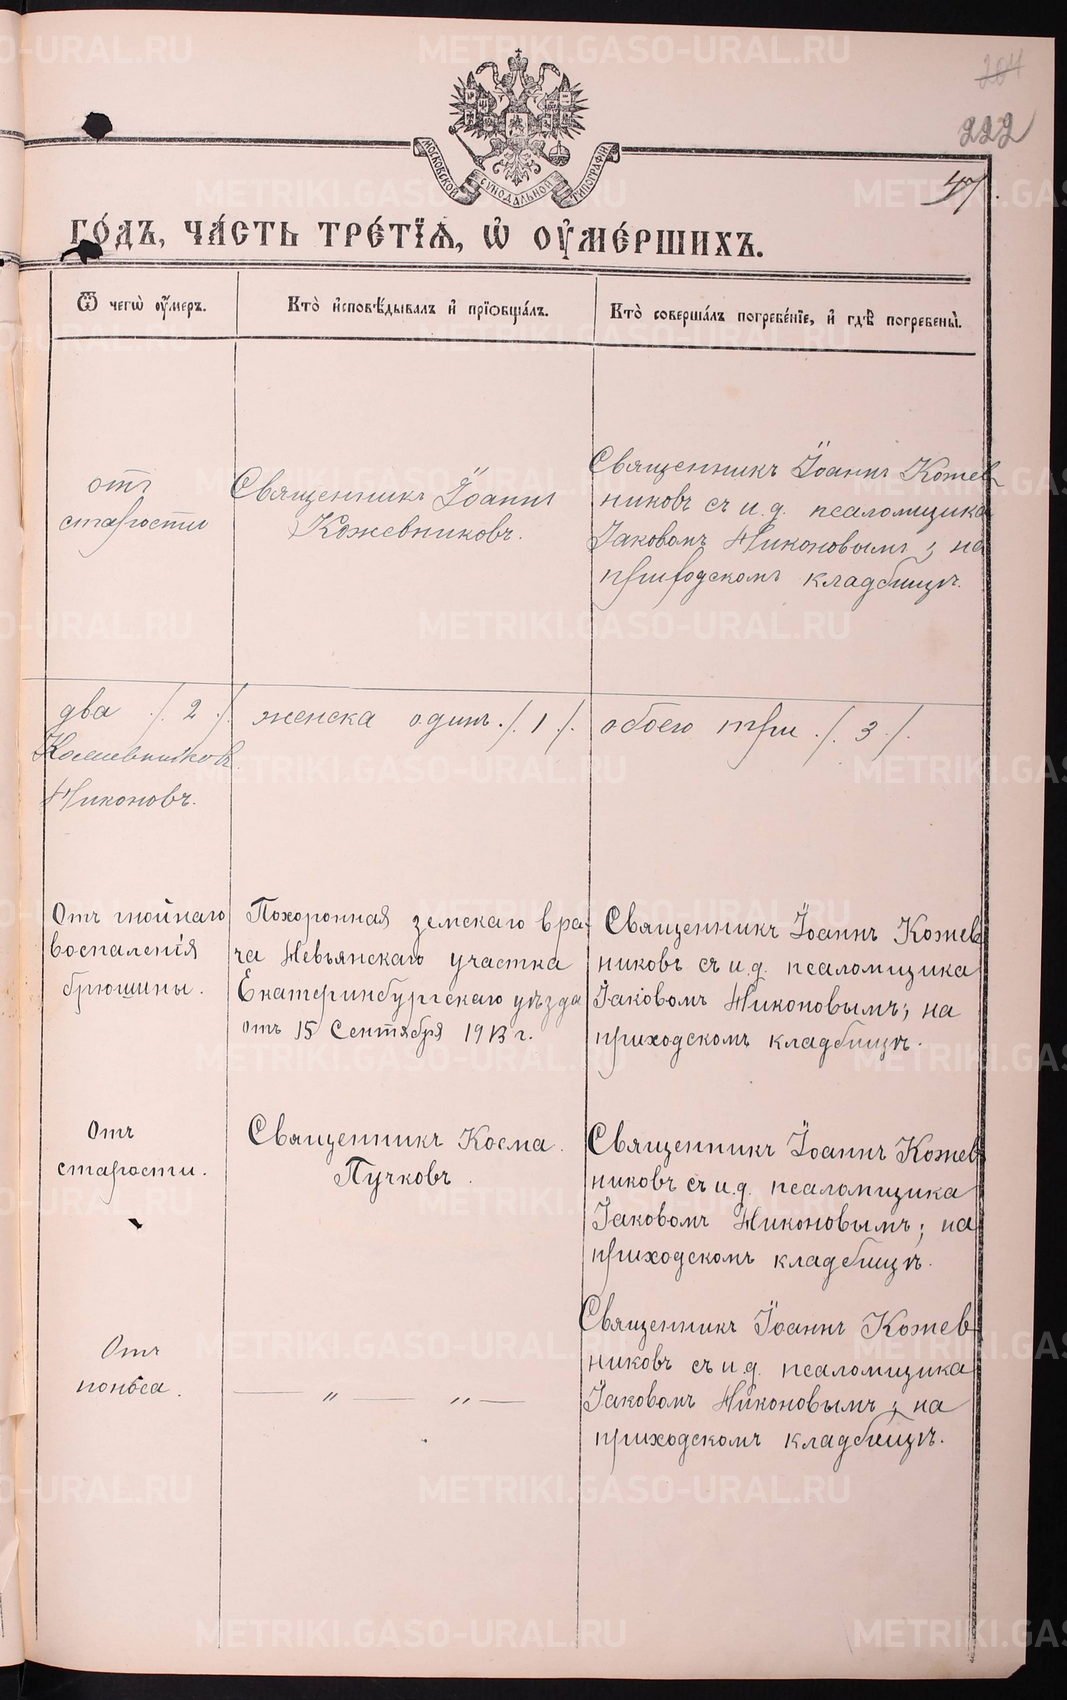 204
222
47.
МОСКОВСКОЙ СѴНОДАЛЬНОЙ ТИПОГРАФІИ
ГО́ДЪ, ЧА́СТЬ ТРЕ́ТІЯ, Ѡ҆ ОУ҆МЕ́РШИХЪ.
Ѿ чегѡ̀ оу҆́меръ.
Кто̀ и҆сповѣ́дывалъ и҆ прїѡбща́лъ.
Кто̀ соверша́лъ погребе́нїе, и҆ гдѣ̀ погребены̀.
отъ
старости
Священникъ Іоаннъ
Кожевниковъ.
Священникъ Іоаннъ Кожев
никовъ съ и.д. псаломщика
Іаковомъ Никоновымъ; на
приходскомъ кладбищѣ.
два ./. 2 ./.
женска одинъ ./. 1 ./.
обоего три ./. 3 ./.
Кожевниковъ.
Никоновъ.
Отъ гнойнаго
воспаленія
брюшины.
Похоронная земскаго вра-
ча Невьянскаго участка
Екатеринбургскаго уѣзда
отъ 15 Сентября 1913 г.
Священникъ Іоаннъ Кожев
никовъ съ и.д. псаломщика
Іаковомъ Никоновымъ; на
приходскомъ кладбищѣ.
Отъ
старости.
Священникъ Косма
Пучковъ.
Священникъ Іоаннъ Кожев
никовъ съ и.д. псаломщика
Іаковомъ Никоновымъ; на
приходскомъ кладбищѣ.
Отъ
поноса.
— „ — „ —
Священникъ Іоаннъ Кожев
никовъ съ и.д. псаломщика
Іаковомъ Никоновымъ; на
приходскомъ кладбищѣ.
METRIKI.GASO-URAL.RU